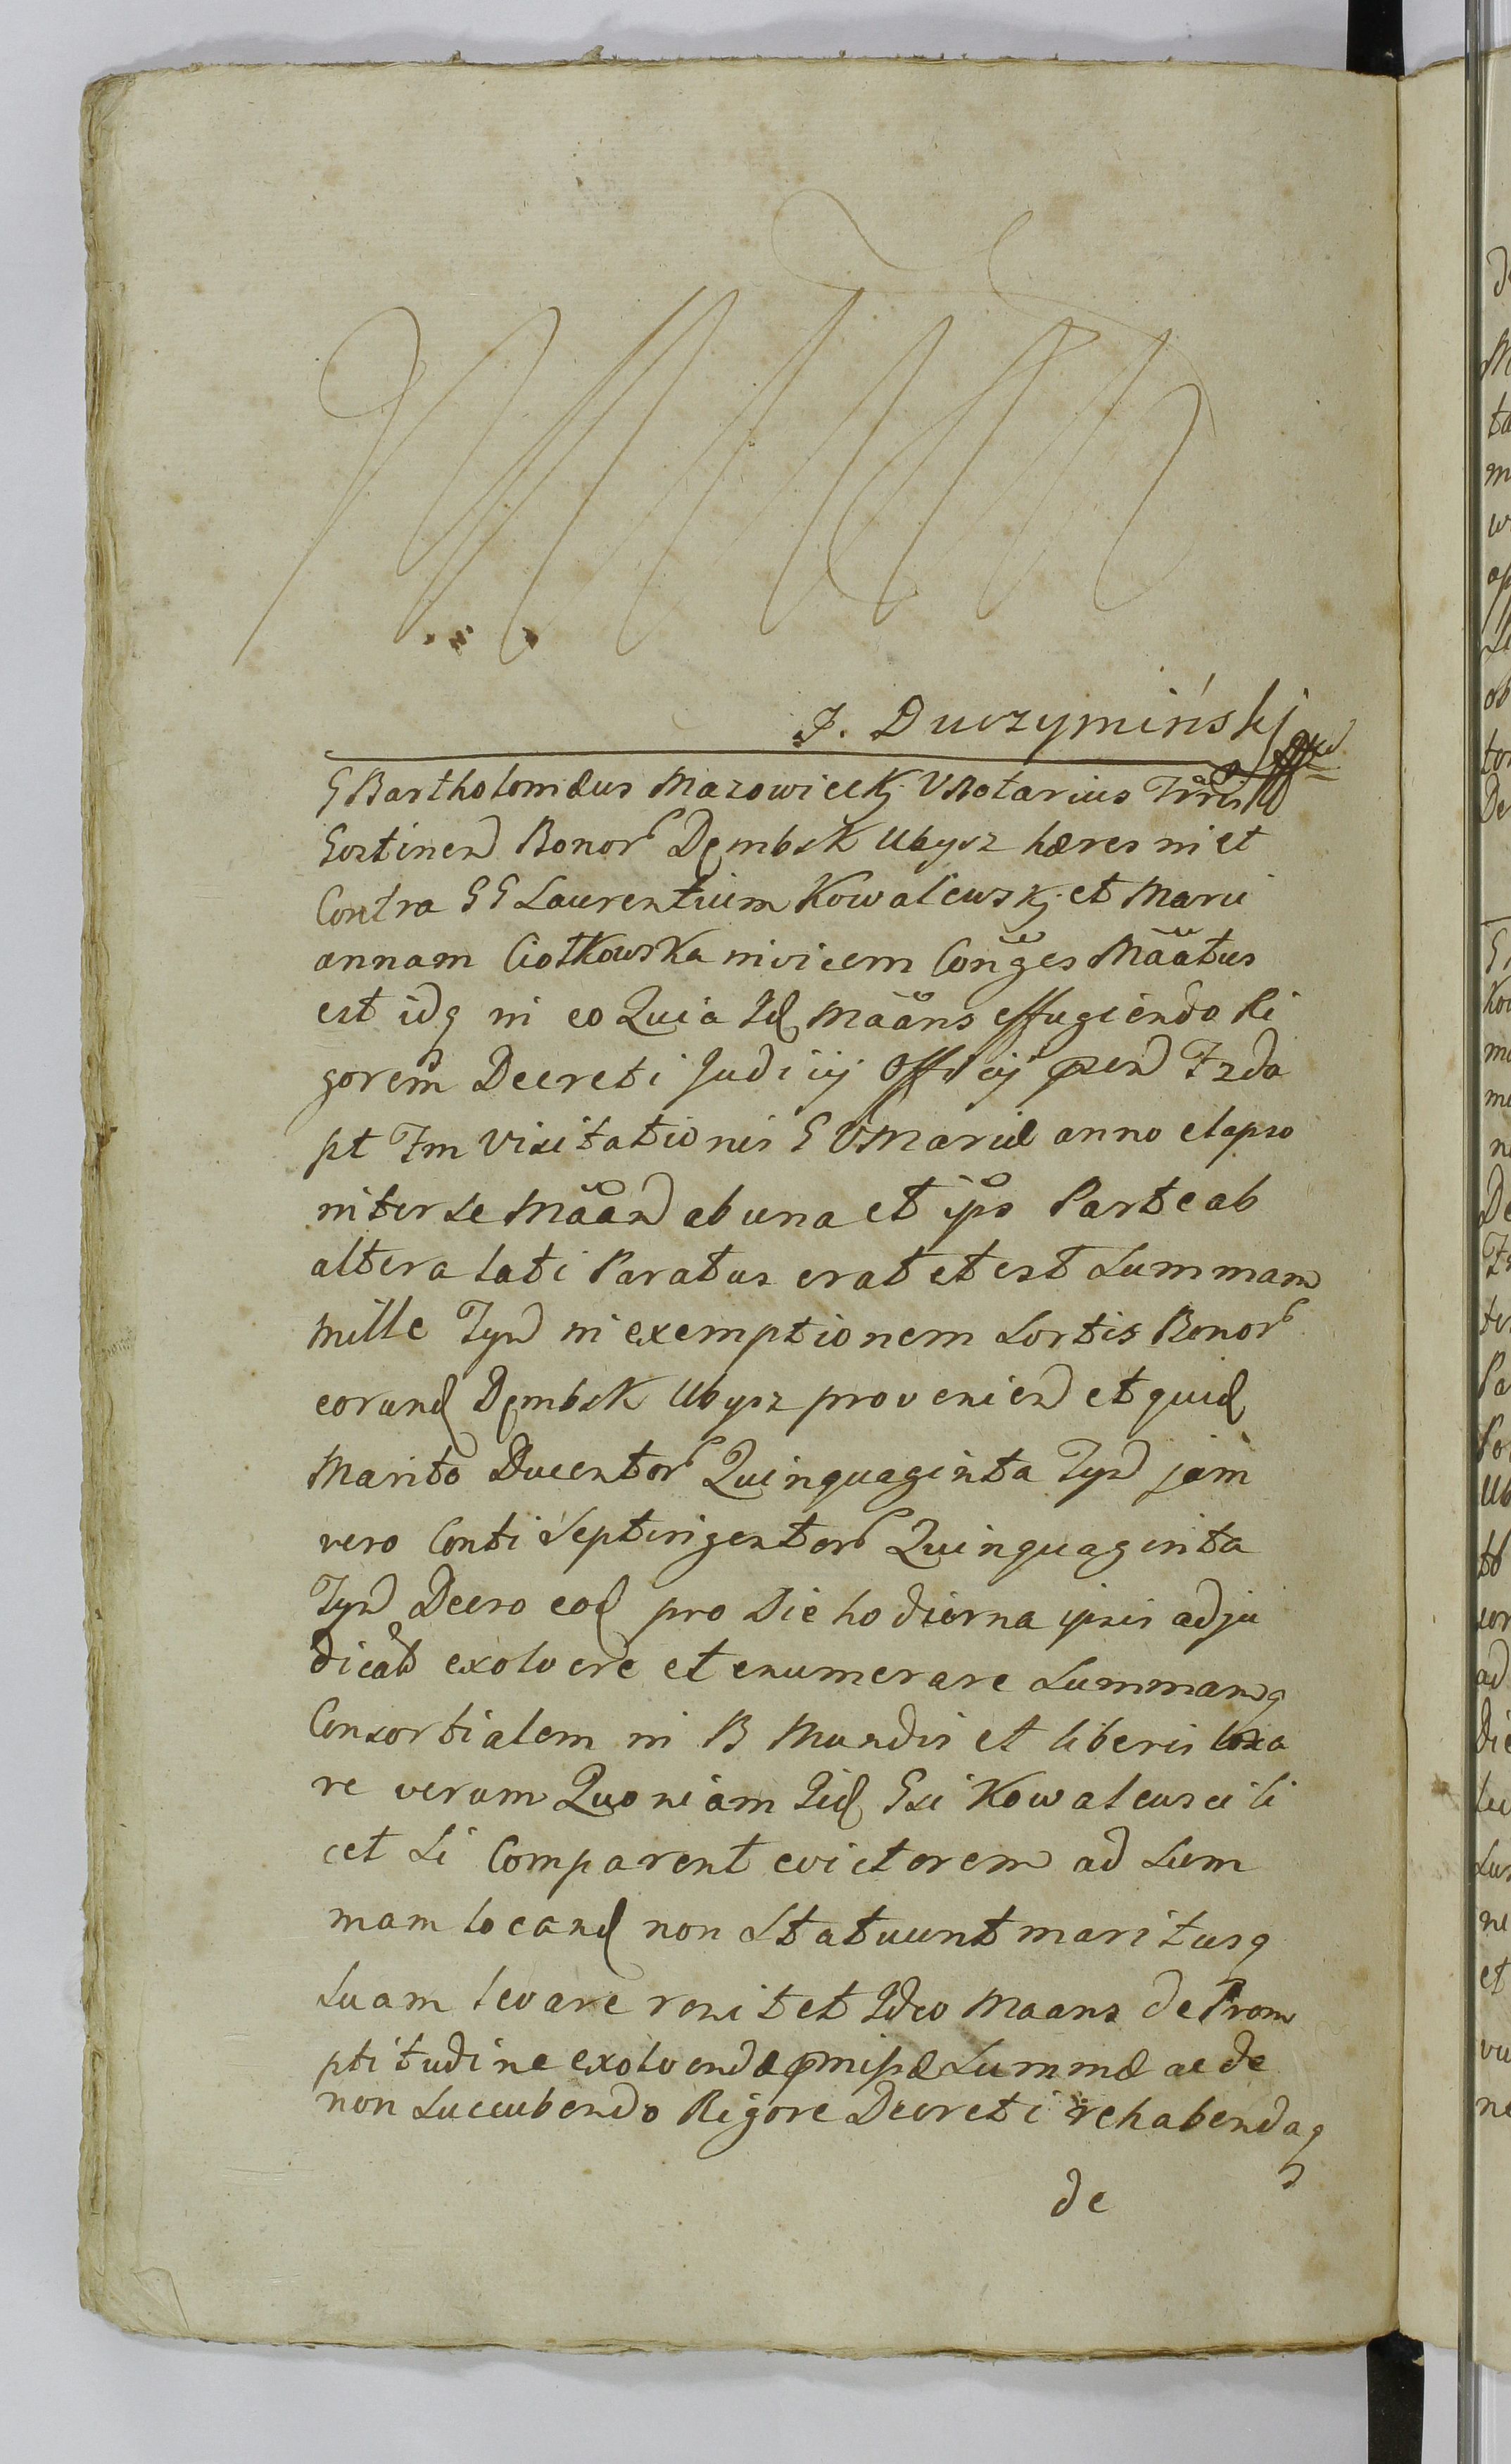 J. Duczymińskj
G Bartholomæus Mazowieckj VNotarius Trris
Sortinen Bonor Dęmbsk Ubysz hæres in et
Contra GG Laurentium Kowalewskj et Mari
annam Ciotkowska invicem Conges Maatus
est idq in eo Quia Id Maans effugiendo Ri
gorem Decreti Judicij Officij pnen Frda
pt Fm Visitationis S VMariæ anno elapso
inter se Maan ab una et ipso Parte ab
altera lati Paratus erat et est Summam
mille Tyn in exemptionem Sortis Bonor
eorund Dęmbsk Ubysz provenien et quid
Marito Ducentor Quinquaginta Tyn jam
vero Conti Septingentor Quinquaginta
Tyn Decro eod pro Die hodierna ipsis adju
dicat exolvere et enumerare Summamq
Consortialem in B Mundis et liberis loca
re verum Quoniam Iid Gsi Kowalewsci li
cet Si Comparent evictorem ad Sum
mam locand non Statuunt maritusq
Suam levare renitet Ideo Maans de Prom
ptitudine exolvendæ pmissæ Summæ ac de
non Succubendo Rigore Decreti rehabendaq
de